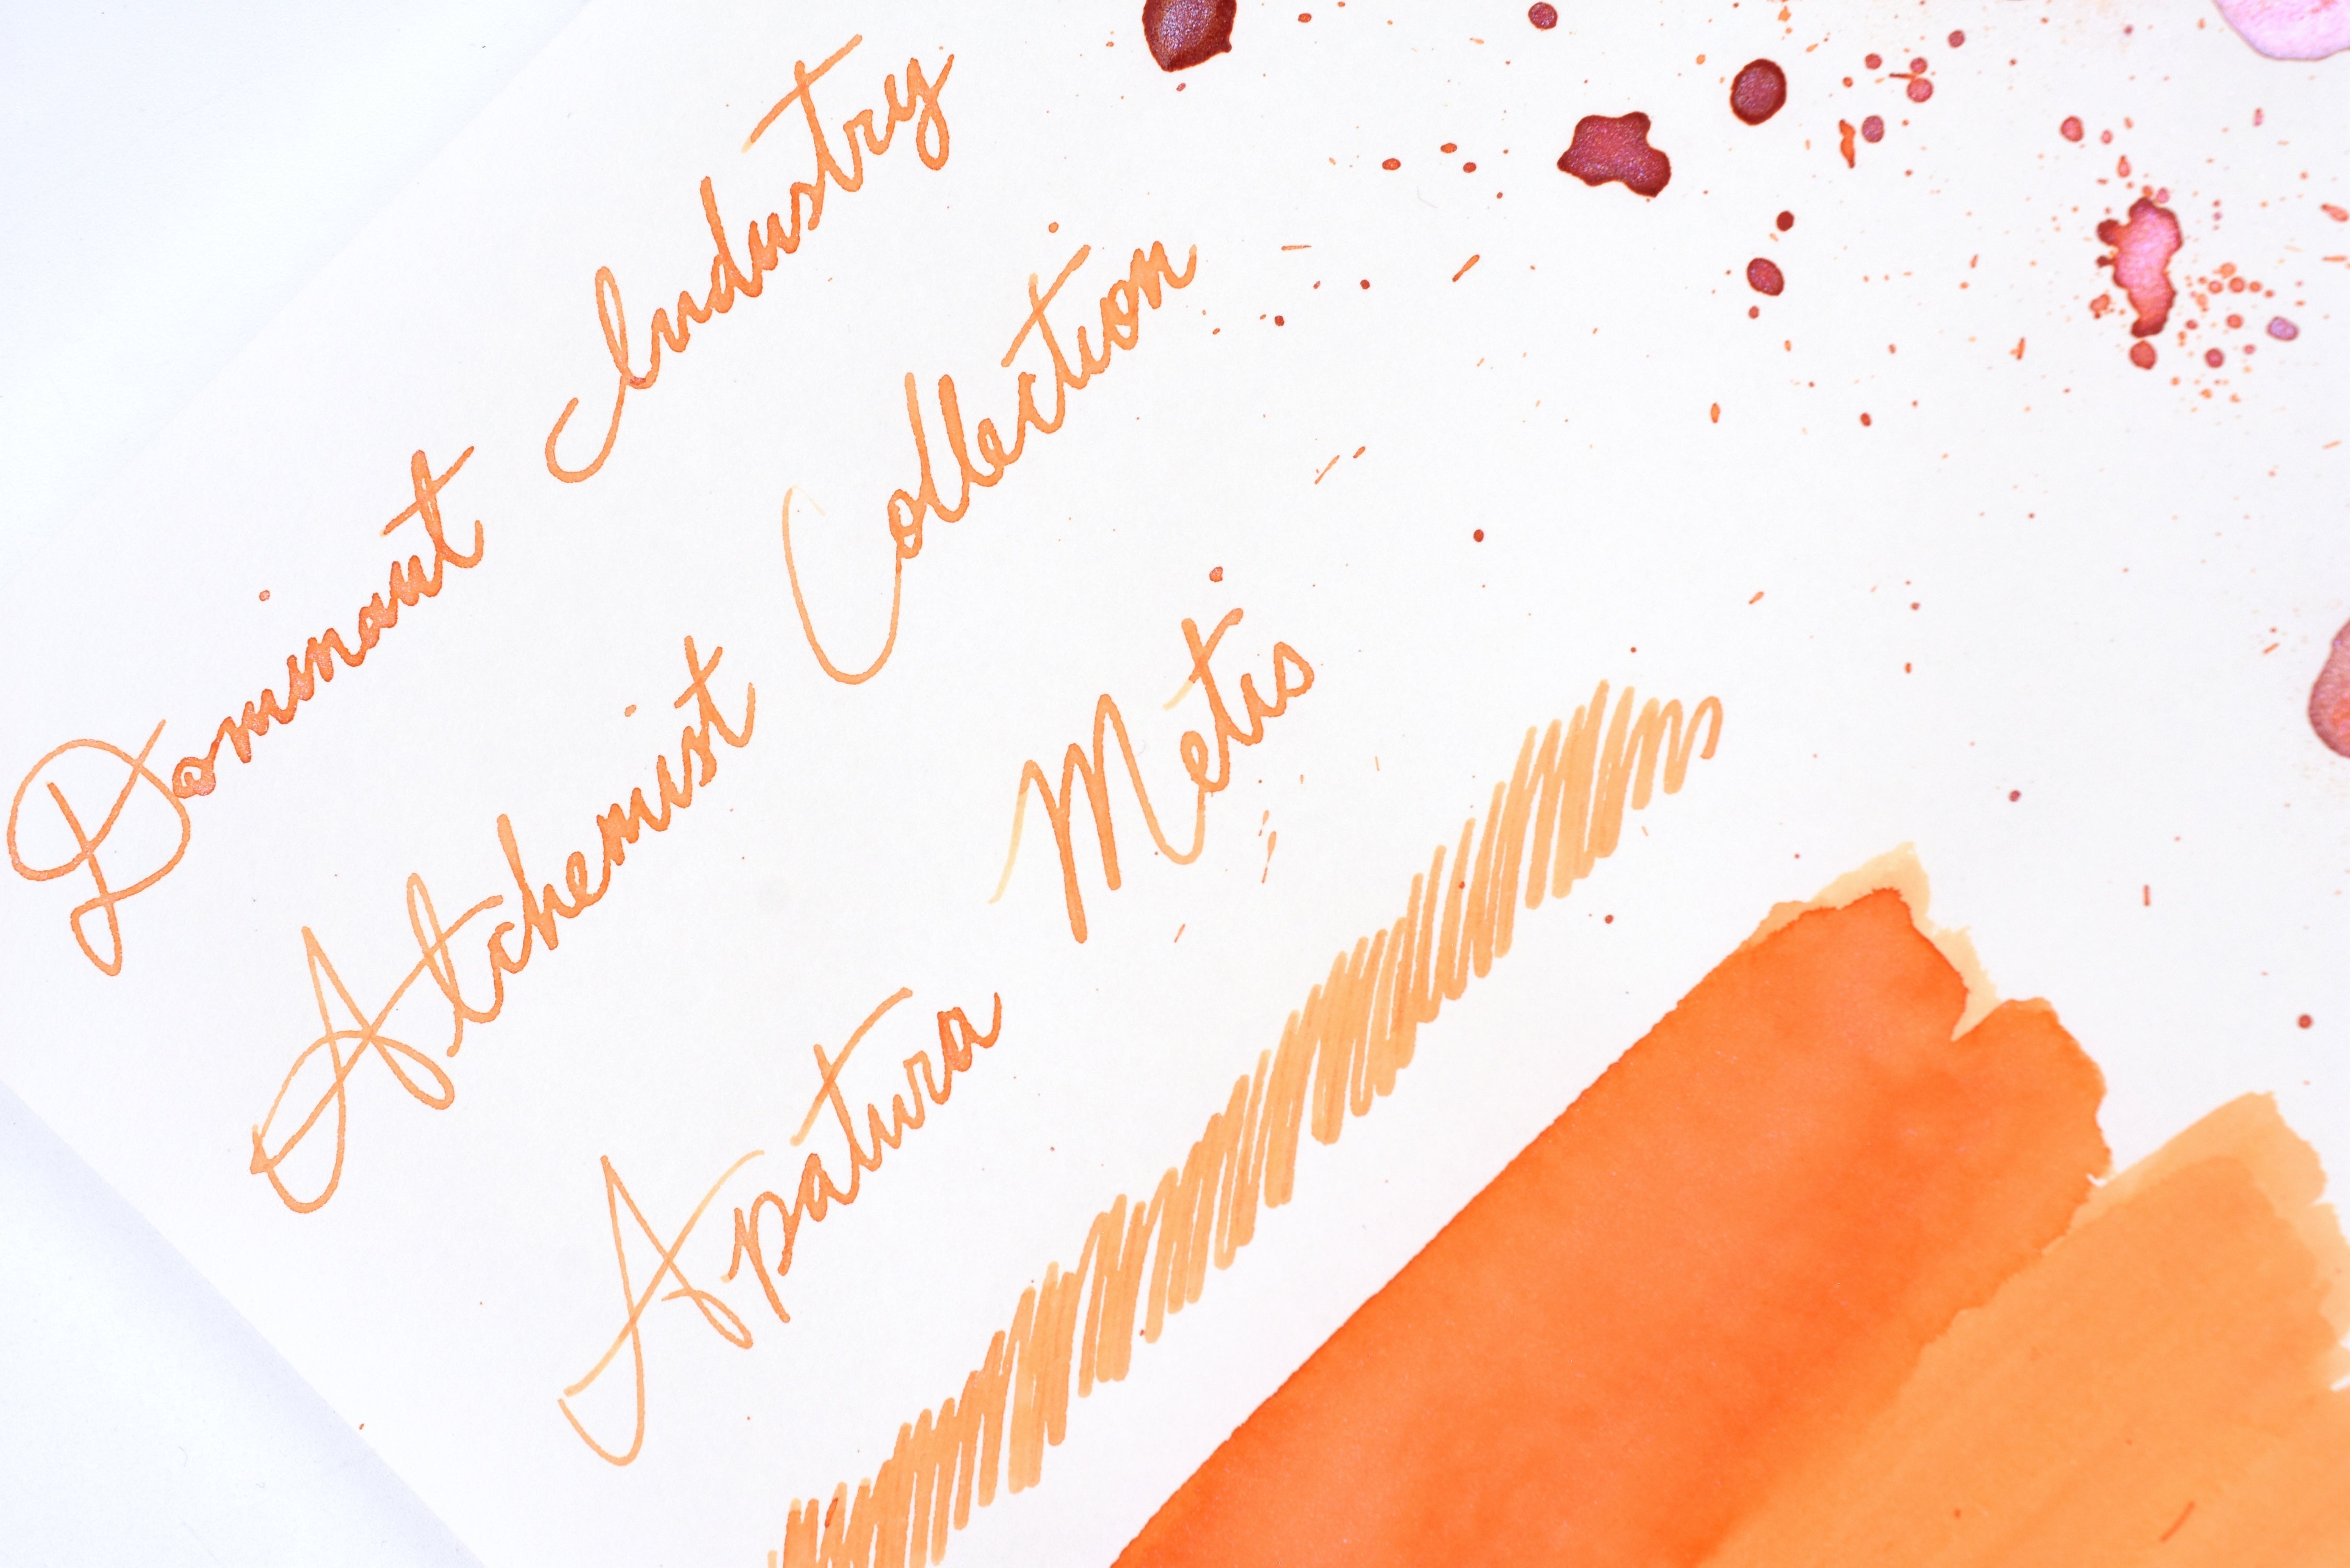 Dominant Industry
Altchemist Collection
Apatura Metis